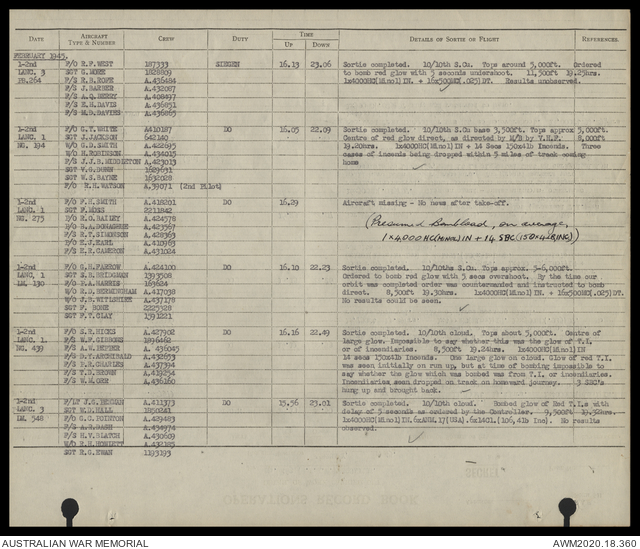 DATE AIRCRAFT TYPE & NUMBER CREW DUTY TIME UP DOWN DETAILS OF SORTIE OR FLIGHT REFERENCES.
FEBRUARY 1945.
1-2nd F/O R.F.WEST 187333 SIEGEN 16.13 23.06 Sortie completed. 10/10th S.Cu. Tops around 5,000ft. Ordered
LANC. 3 SGT G.MORE 1828809 to bomb red glow with 5 seconds undershoot. 11,500ft 19.25hrs.
PB.264 F/S R.B.ROPE A.436484 1x4000HC(Minol)IN. + 16x500MC(.025)DT. Results unobserved.
F/S J.BARBER A.432087
F/S A.Q.BERRY A.408497
F/S R.H.DAVIS A.436851
F/S M.D.DAVIES A.436865
1-2nd F/O G.T.WHITE A410187 DO 16.05 22.09 Sortie completed. 10/10th S.Cu base 3,500ft. Tops approx 5,000ft.
LANC. 1 SGT J.JACKSON 642140 Centre of red glow direct, as directed by M/B by V.H.F. 8,000ft
NG. 194 W/O G.D.SMITH A.422695 19.20hrs. 1x4000HC(Minol)IN + 14 Secs 150x4lb Incends. Three
W/O H.ROBINSON A.434015 cases of incends being dropped within 5 miles of track coming
F/S J.J.R.MIDDLETON A.423013 home
SGT V.G.DUNN 1629631
SGT W.S.BAYNE 1632028
F/O R.H.WATSON A.39071 (2nd Pilot)
1-2nd F/O F.H.SMITH A.418201 DO 16.29 Aircraft missing - No news after take-off.
LANC. 1 SGT F.MOSS 2211842
NG. 275 F/S H.G.BAILEY A.424578 (Presumed Bombload, on average,
F/O B.A.DONAGHUE A.423367 1 x 4,000 HC(MINOL)IN + 14 SBC (150x4LBINC))
F/S R.T.SIMONSON A.428363
F/O E.J.EARL A.410963
F/S K.R.CAMERON A.431024
1-2nd F/O G.H.FARROW A.424100 DO 16.10 22.23 Sortie completed. 10/10ths S.Cu. Tops approx. 5-6,000ft.
LANC. 1 SGT S.E.BRIDGMAN 1393508 Ordered to bomb red glow with 5 secs overshoot. By the time our
LM. 130 F/O P.A.HARRIS 163624 orbit was completed order was countermanded and instructed to bomb
W/O R.D.BERMINGHAM A.417038 direct. 8,500ft 19.30hrs. 1x4000HC(Minol)IN. + 16x500MC(.025)DT.
W/O J.B.WILTSHIRE A.437178 No results could be seen.
SGT F. HONE 2225328
SGT F.T.CLAY 1591221
1-2nd F/O S.R.HICKS A.427902 DO 16.16 22.49 Sortie completed. 10/10th cloud. Tops about 5,000ft. Centre of
LANC. 1. F/S W.F.GIBBONS 1896482 large glow. Impossible to say whether this was the glow of T.I.
NG. 439 F/S A.W.HEPNER A. 436045 or of incendiaries. 8,500ft 19.24hrs. 1x4000HC(Minol)IN
F/S D.T.ARCHIBALD A.432653 14 secs 150x4lb Incends. One large glow on cloud. Glow of red T.I.
F/S P.B.CHARLES A.437394 was seen initially on run up, but at time of bombing impossible to
F/S T.D.BROWN A.419254 say whether the glow which was bombed was from T.I. or incendiaries.
F/S W.M.ORM A.436160 Incendiaries seen dropped on track on homeward journey. 3 SBC's
hung up and brought back.
1-2nd F/LT J.G.BEGGAN A.411373 DO 15.56 23.01 Sortie completed. 10/10th cloud. Bombed glow of Red T.I.s with
LANC. 3 SGT W.D.HALL 1850241 delay of 5 seconds as ordered by the Controller. 9,500ft 19.32hrs.
LM. 548 F/O G.C.POINTON A.429483 1x4000HC(Minol)IN.6xANM.17(USA).6x14Cl.(106,4lb Inc). No results
F/S A.R.DASH A.434974 observed.
F/S H.V.BLATCH A.430609
W/O R.H.HOWLETT A.432185
SGT R.G.KWAN 1193193
AUSTRALIAN WAR MEMORIAL AWM2020.18.360